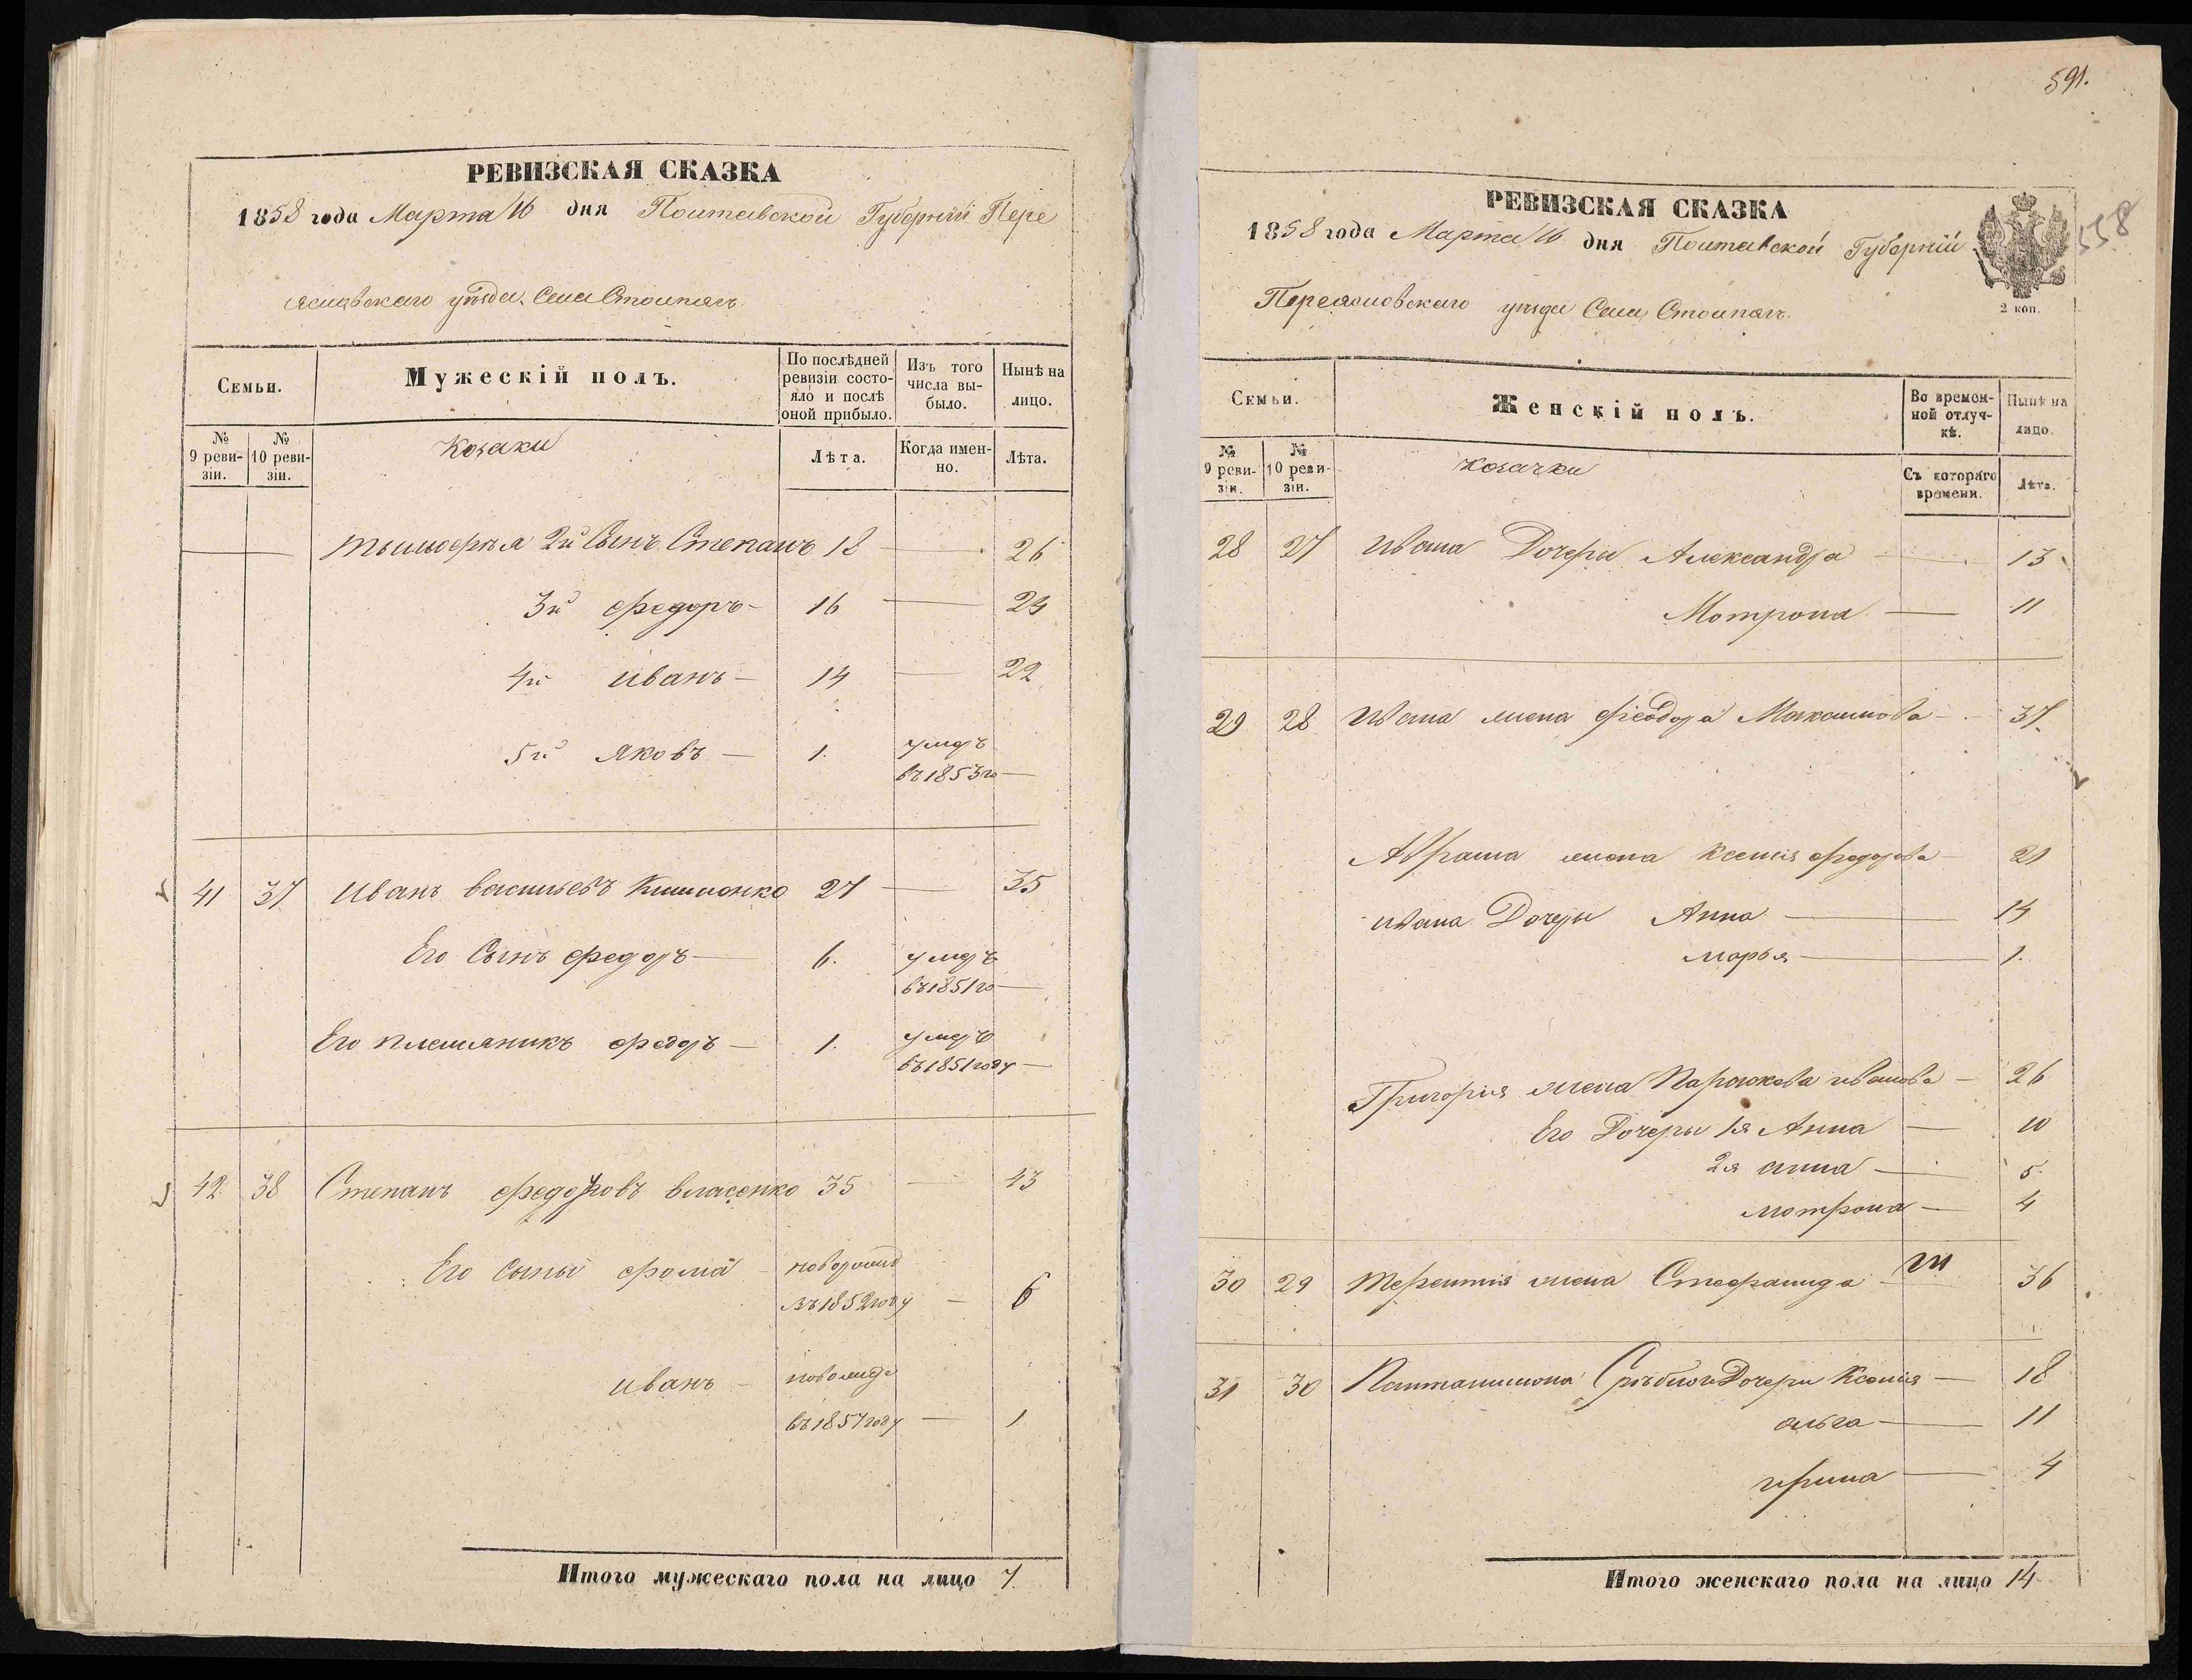 РЕВИЗСКАЯ СКАЗКА
1858 года Марта 16 дня Полтавской Губерніи Пере
яславского уѣзда Села Столпяг
Семьи.
Мужескій полъ.
По послѣдней ревизіи состояло и послѣ оной прибыло.
Изъ того числа выбыло.
Нынѣ на лицо.
№ 9 ревизіи.
№ 10 ревизіи.
Козаки
Лѣта.
Когда именно.
Лѣта.
Тымофѣя 2й Сынъ Степанъ 18 — 26
3й Федоръ — 16 — 24
4й Иванъ — 14 — 22
5й Яковъ — 1. умеръ
въ 1853 го —
41 37 Иванъ Васильевъ 27 — 35
Его Сынъ Федоръ — 6. умеръ
въ 1851 го —
Его племяникъ Федоръ — 1. умеръ
въ 1851 году —
42. 38 Степанъ Федоровъ Власенко 35 — 43
Его Сыны Фома
въ 1852 году — 6
Иванъ —
въ 1857 году — 1
Итого мужескаго пола на лицо 7.
591.
558
РЕВИЗСКАЯ СКАЗКА
1858 года Марта 16 дня Полтавской Губерніи
Переясловского уѣзда Села Столпяг
2 коп.
Семьи.
Женскій полъ.
Во временной отлучкѣ.
Нынѣ на лицо.
№ 9 ревизіи.
№ 10 ревизіи.
козачки
Съ котораго времени.
Лѣта.
28 27 Ивана Дочери Александра — 13
Мотрона — 11
29 28 Ивана жена Феодора Максимова — 37.
Абрама жена Ксенія Федорова — 21
Ивана Дочеры Анна — 14
Марья — 1.
Григорія жена Иванова — 26
Его Дочеры 1я Анна — 10
2я Анна — 5.
Мотрона — 4
30 29 Терентія жена Стефанида — 36
31 30 Дочери Ксенія — 18
Ольга — 11
Ирина — 4
Итого женскаго пола на лицо 14